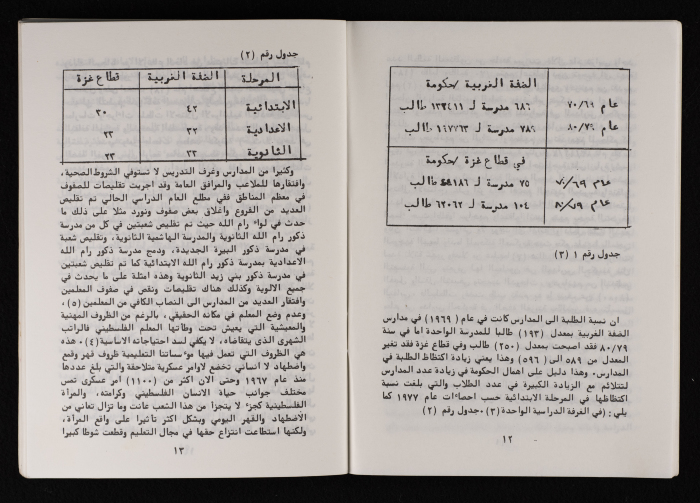 الضفة الغربية /حكومة
عام ٧٠/٦٩ ٦٨٦ مدرسة لـ ١٣٢٤١١ طالب
عام ٨٠/٧٩ ٧٨٩ مدرسة لـ ١٤٧٧٦٣ طالب
في قطاع غزة /حكومة
عام ٧٠/٦٩ ٧٥ مدرسة لـ طالب
عام ٨٠/٧٩ ١٠٤ مدرسة لـ ٦٢٠٦٢ طالب
جدول رقم ١ (٣)
ان نسبة الطلبة الى المدارس كانت في عام (١٩٦٩) في مدارس
الضفة الغربية بمعدل (١٩٣) طالبا للمدرسة الواحدة اما في سنة
٨٠/٧٩ فقد اصبحت بمعدل (٢٥٠) طالب وفي قطاع غزة فقد تغير
المعدل من ٥٨٩ الى (٥٩٦) وهذا يعني زيادة اكتظاظ الطلبة في
المدارس. وهذا دليل على اهمال الحكومة في زيادة عدد المدارس
لتتلائم مع الزيادة الكبيرة في عدد الطلاب والتي بلغت نسبة
اكتظاظها في المرحلة الابتدائية حسب احصاءات عام ١٩٧٧ كما
يلي : (في الغرفة الدراسية الواحدة) (٣). جدول رقم (٢)
١٢
جدول رقم (٢)
المرحلة الضفة الغربية قطاع غزة
الابتدائية ٤٢ ٣٠
الاعدادية ٣٢ ٢٣
الثانوية ٣٣ ٢٣
وكثيرا من المدارس وغرف التدريس لا تستوفي الشروط الصحية،
وافتقارها للملاعب والمرافق العامة وقد اجريت تقليصات للصفوف
في معظم المناطق ففي مطلع العام الدراسي الحالي تم تقليص
العديد من الفروع واغلاق بعض صفوف ونورد مثلا على ذلك ما
حدث في لواء رام الله حيث تم تقليص شعبتين في كل من مدرسة
ذكور رام الله الثانوية والمدرسة الهاشمية الثانوية، وتقليص شعبة
في مدرسة ذكور البيرة الجديدة، ودمج مدرسة ذكور رام الله
الاعدادية بمدرسة رام الله الابتدائية كما تم تقليص شعبتين
في مدرسة ذكور بني زيد الثانوية وهذه امثلة على ما يحدث في
جميع الالوية وكذلك هناك تقليصات ونقص في صفوف المعلمين
وافتقار العديد من المدارس الى النصاب الكافي من المعلمين (٥)،
وعدم وضع المعلم في مكانه الحقيقي، بالرغم من الظروف المهنية
والمعيشية التي يعيش تحت وطأتها المعلم الفلسطيني فالراتب
الشهري الذي يتقاضاه، لا يكفي لسد احتياجاته الاساسية (٤). هذه
هي الظروف التي تعمل فيها مؤسساتنا التعليمية ظروف قهر وقمع
واضطهاد لا انساني تخضع لاوامر عسكرية متلاحقة والتي بلغ عددها
منذ عام ١٩٦٧ وحتى الان اكثر من (١١٠٠) امر عسكري تمس
مختلف جوانب حياة الانسان الفلسطيني وكرامته، والمرأة
الفلسطينية كجزء لا يتجزأ من هذا الشعب عانت وما تزال تعاني من
الاضطهاد والقهر اليومي وبشكل اكثر تأثيرا على واقع المرأة،
ولكنها استطاعت انتزاع حقها في مجال التعليم وقطعت شوطا كبيرا
١٣